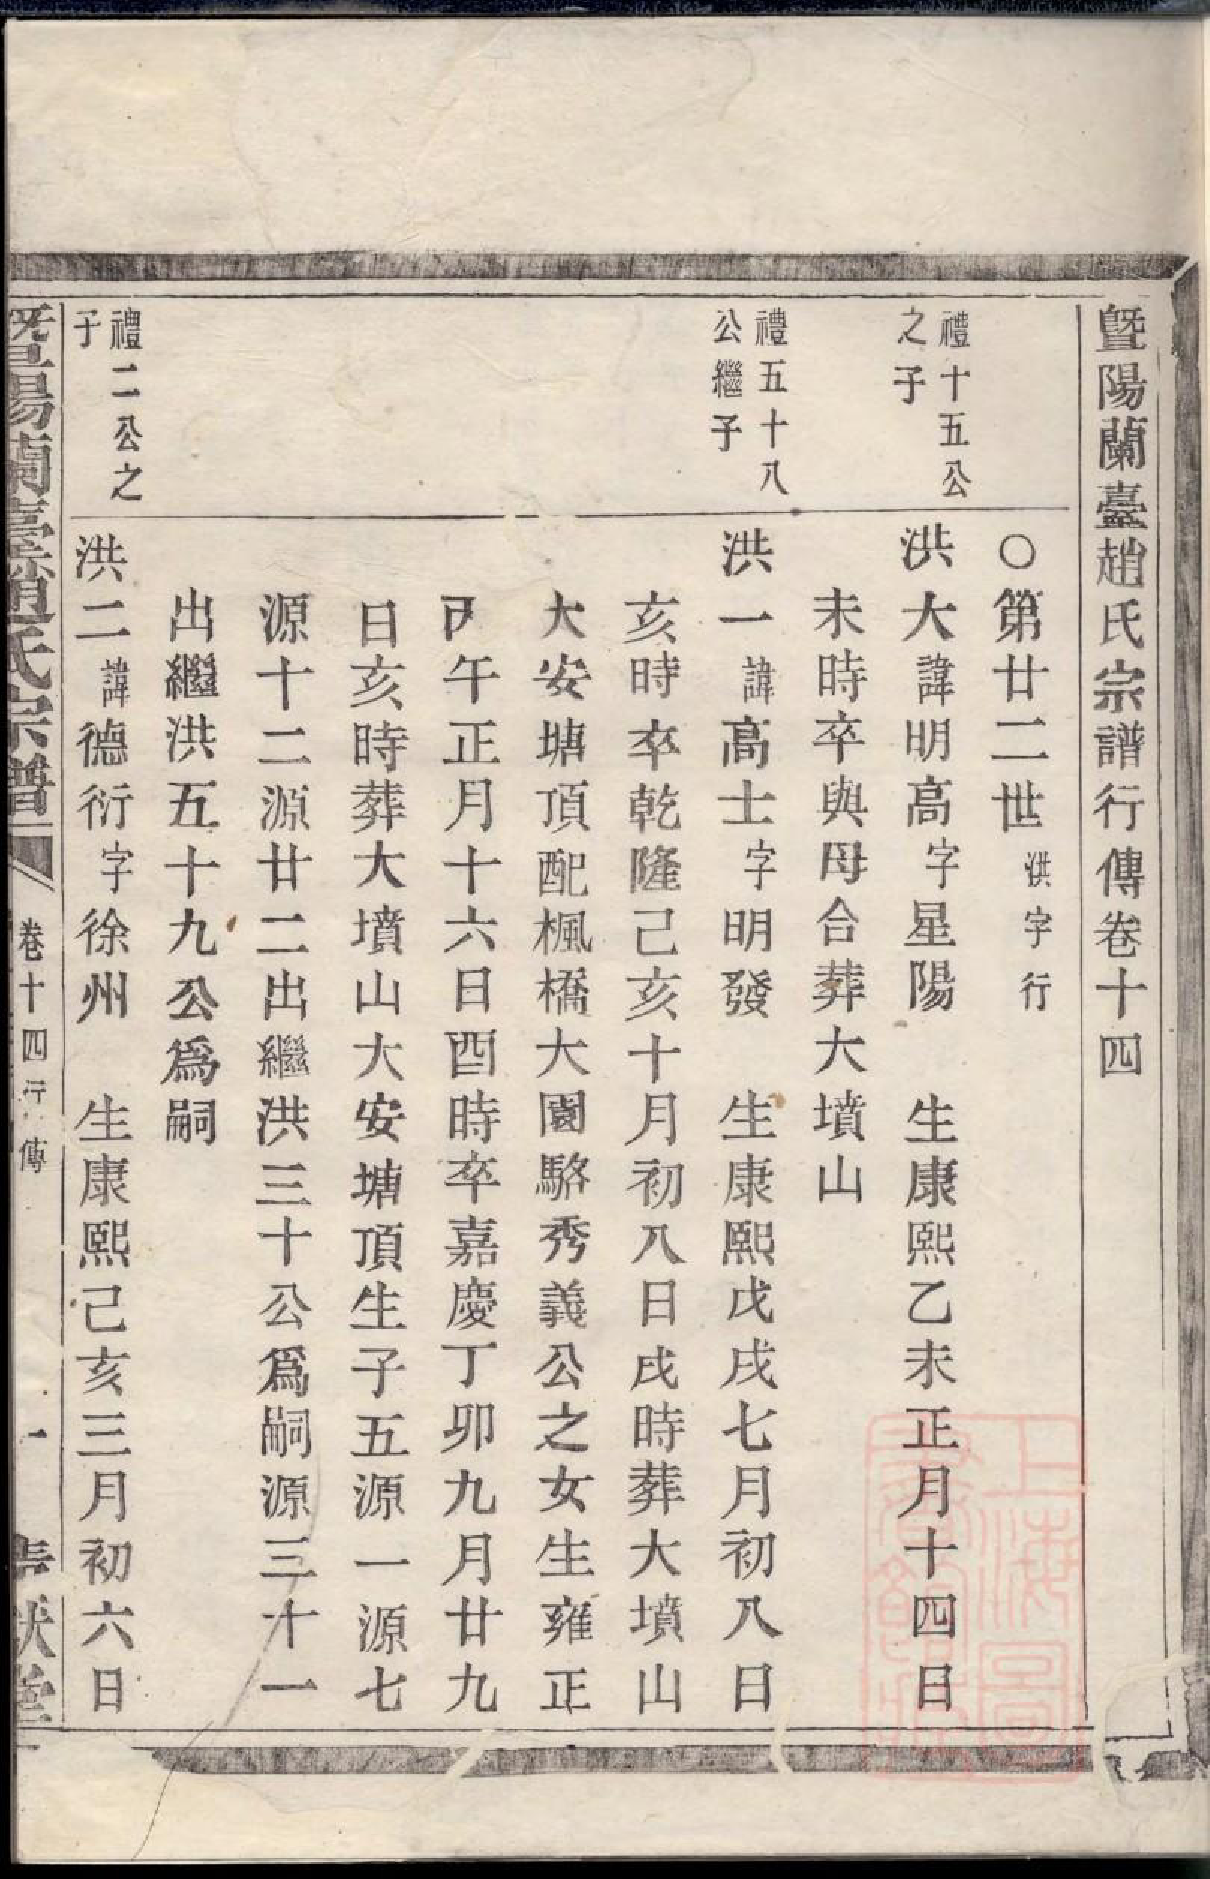 暨陽蘭臺趙氏宗譜行傳卷十四
○第廿二世洪字行
禮十五公
之子
洪大諱明高字星陽 生康熙乙未正月十四日
未時卒與母合葬大墳山
禮五十八
公繼子
洪一諱高士字明發 生康熙戊戌七月初八日
亥時卒乾隆己亥十月初八日戌時葬大墳山
大安塘頂配楓橋大園駱秀義公之女生雍正
丙午正月十六日酉時卒嘉慶丁卯九月廿九
日亥時葬大墳山大安塘頂生子五源一源七
源十二源廿二出繼洪三十公爲嗣源三十一
出繼洪五十九公爲嗣
禮二公之
子
洪二諱德衍字徐州 生康熙己亥三月初六日
暨陽蘭臺趙氏宗譜
卷十四行傳
一
堂
上海圖
書館藏